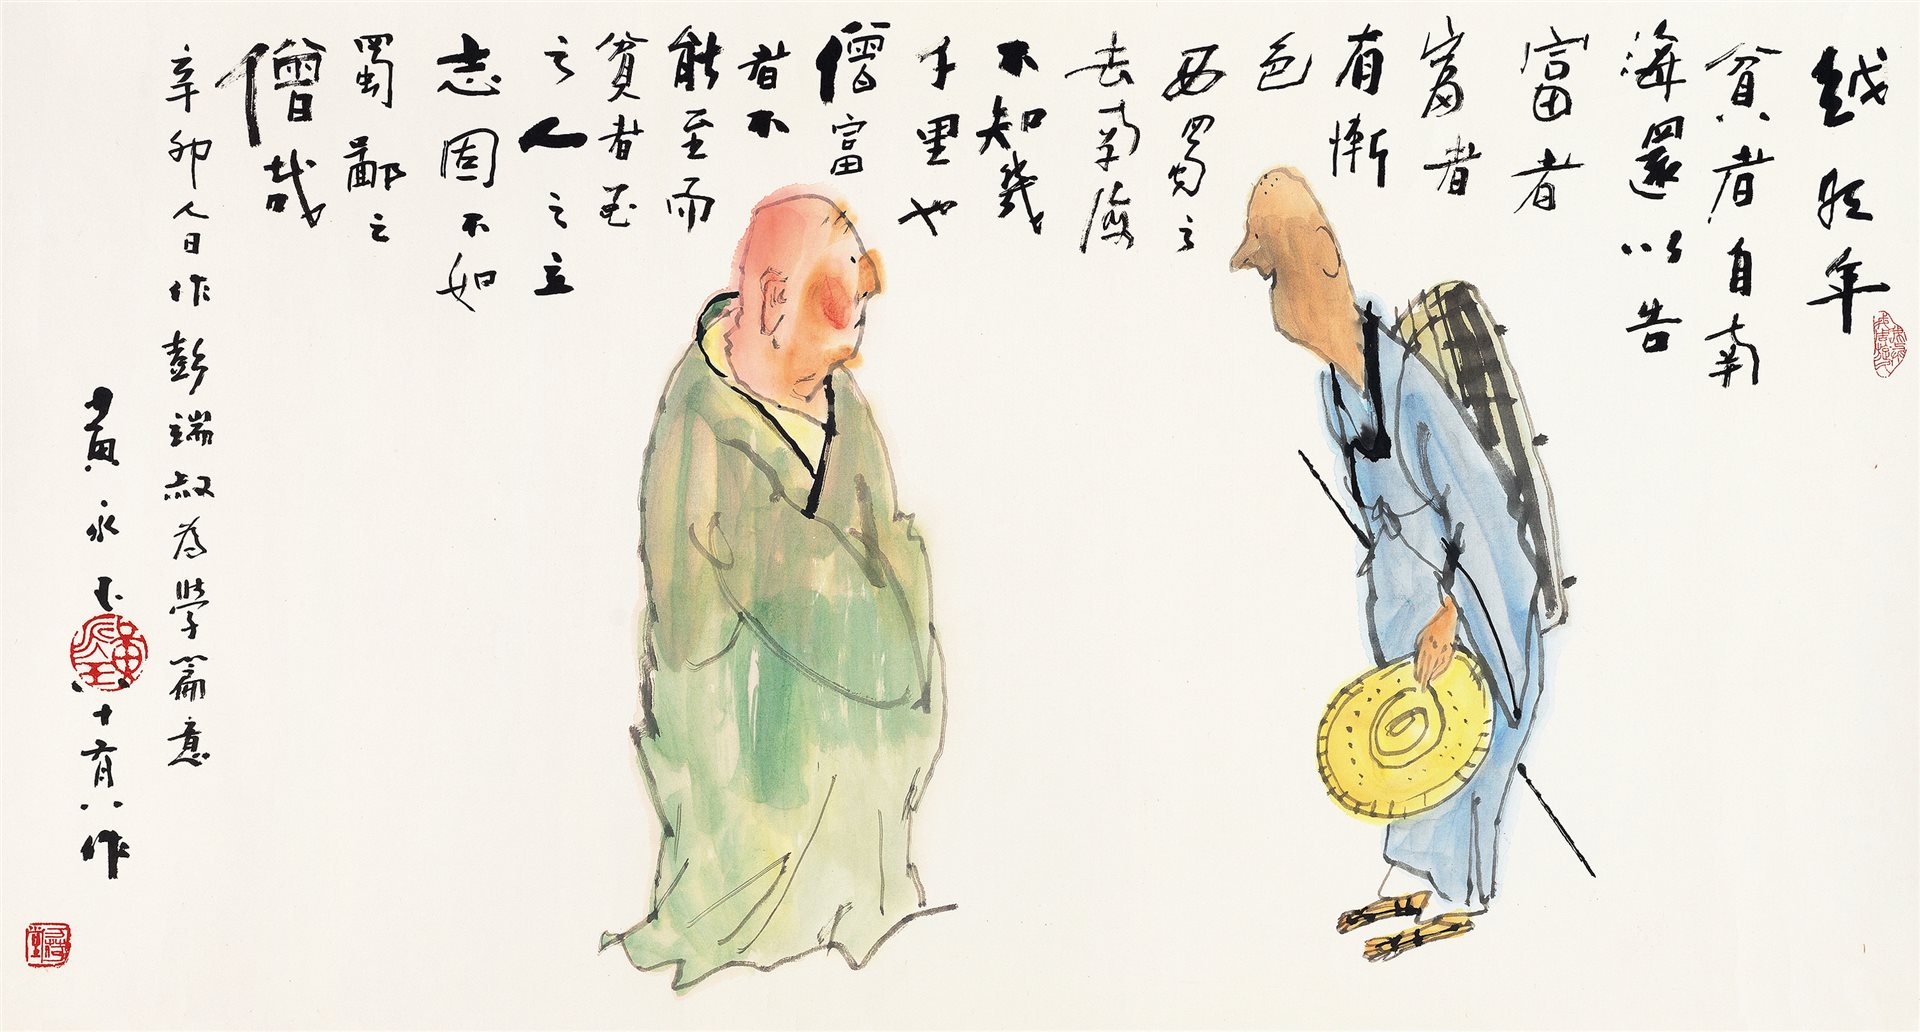 越明年
貧者自南
海還以告
富者
富者
有慚
色
西蜀之
去南海
不知幾
千里也
僧富
者不
能至而
貧者至
之人之立
志固不如
蜀鄙之
僧哉
辛卯人日作彭端叔為學篇意
黃永玉八十有八作
黃永玉